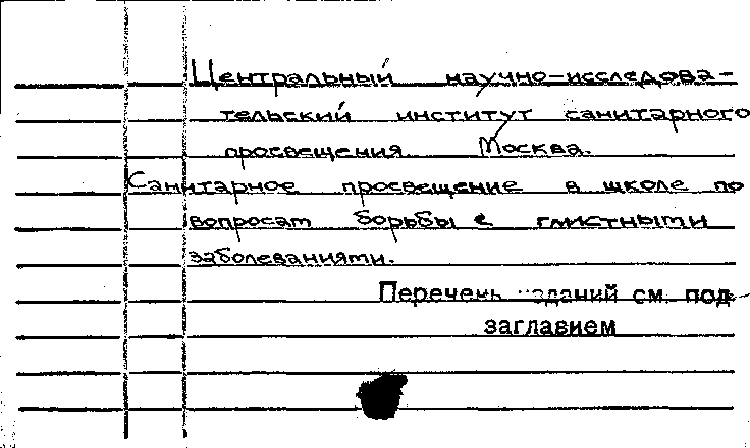 Центральный научно-исследова-
тельский институт санитарного
просвещения Москва.
Санитарное просвещение в школе по
вопросам борьбы с глистными
заболеваниями.
Перечень изданий см. под
заглавием